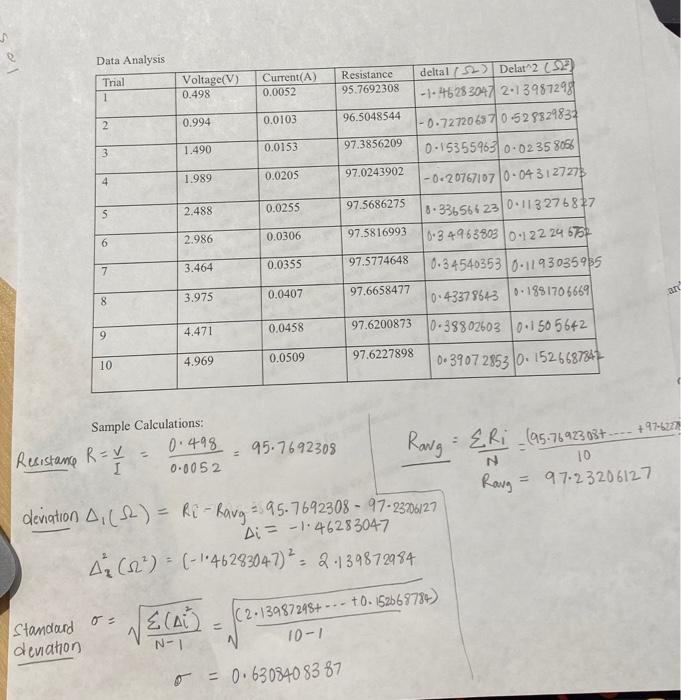 sel
Data Analysis
Trial Voltage(V) Current(A) Resistance delta1 (Ω) Delat^2 (Ω²)
1 0.498 0.0052 95.7692308 -1.46283047 2.13987298
2 0.994 0.0103 96.5048544 -0.72720687 0.528829832
3 1.490 0.0153 97.3856209 0.15355963 0.02358056
4 1.989 0.0205 97.0243902 -0.20767107 0.043127273
5 2.488 0.0255 97.5686275 0.33656623 0.113276827
6 2.986 0.0306 97.5816993 0.34963803 0.122246752
7 3.464 0.0355 97.5774648 0.34540353 0.1193035985
8 3.975 0.0407 97.6658477 0.43378643 0.1881706669
9 4.471 0.0458 97.6200873 0.38802603 0.1505642
10 4.969 0.0509 97.6227898 0.39072853 0.1526687842
Sample Calculations:
Resistance R = V/I = 0.498/0.0052 = 95.7692308
Ravg = ΣRi/N = (95.7692303+ ---- +97.6227/10
Ravg = 97.23206127
deviation Δ₁(Ω) = Ri - Ravg = 95.7692308 - 97.23206127
Δi = -1.46283047
Δ²₂(Ω²) = (-1.46283047)² = 2.139872984
Standard deviation σ = √Σ(Δi²)/N-1 = √(2.13987298+ --- +0.152668784)/10-1
σ = 0.6308408387